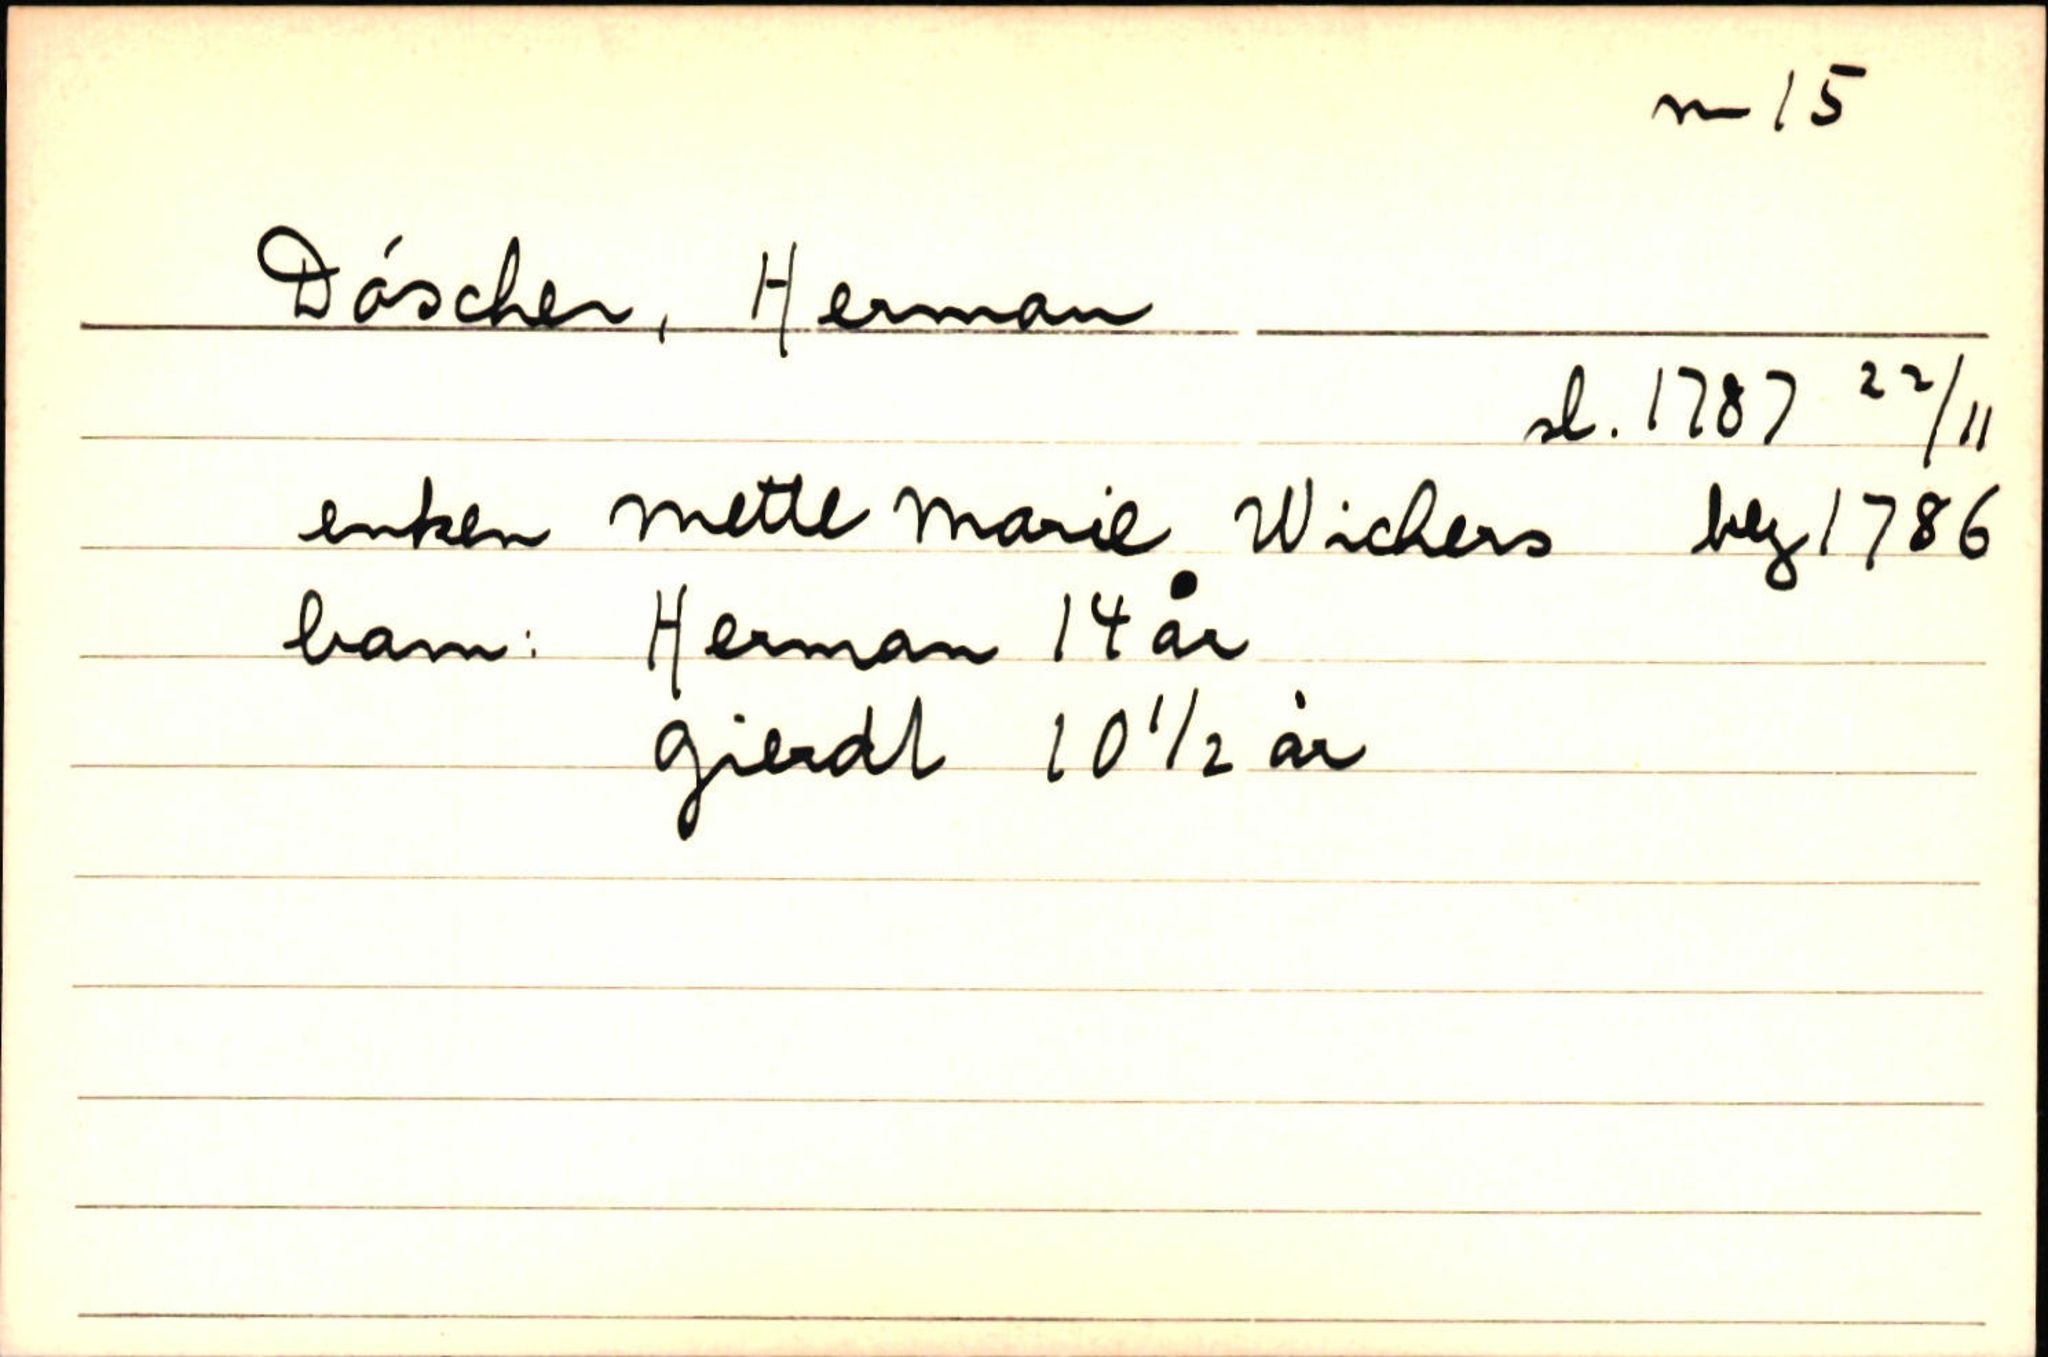 m 15
Dóscher, Herman
sl. 1787 22/11
enken Mette Marie Wichers beg 1786
barn: Herman 14 år
Gierdt 10 1/2 år